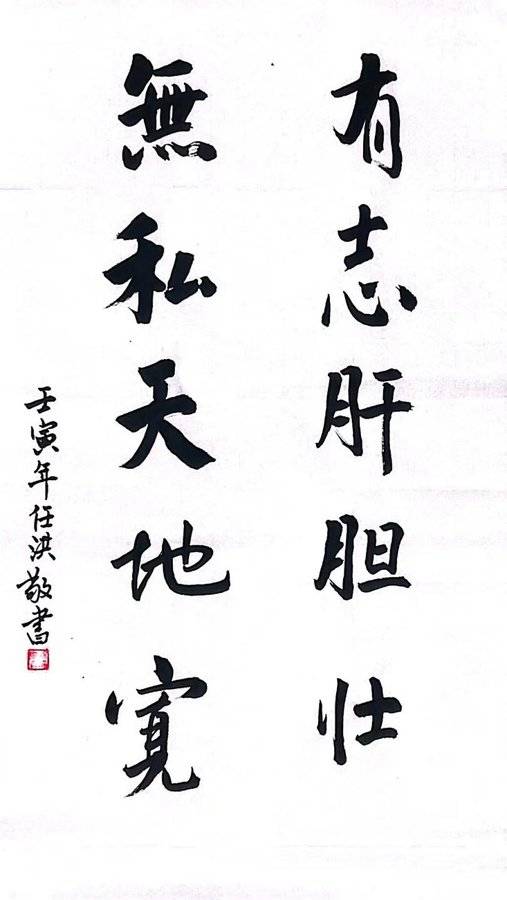 有志肝胆壮
無私天地寛
壬寅年任洪敬書